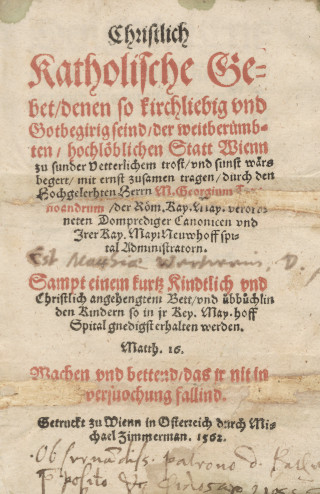 Christlich
Katholische Ge-
bet/denen so kirchliebig vnd
Gotbegirig seind/der weitberümb-
ten/hochlöblichen Statt Wienn
zu sunder Vetterlichem trost/vnd sunst wärs
begert/mit ernst zusamen tragen/durch den
Hochgelerhten Herrn M. Georgium
noandrum/der Röm. Kay. May. verord
neten Domprediger Canonicen vnd
Irer Kay. May: Newhoff spi-
tal Administratorn.
Est Matthiæ
Sampt einem kurtz Kindtlich vnd
Christlich angehengtem Bett/vnd übbüchlin
den Kindern so in jr Key. May. hoff
Spital gnedigst erhalten werden.
Matth. 16.
Wachen vnd bettend/das ir nit in
versuochung fallind.
Getruckt zu Wienn in Osterreich durch Mi-
chael Zimmerman. 1562.
patrono d.